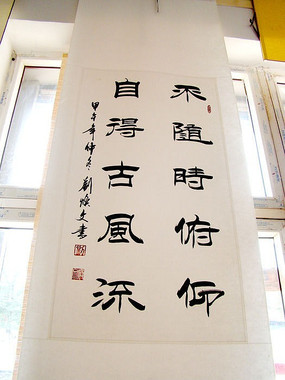 不随時俯仰
自得古風流
甲午年仲冬劉煥文書